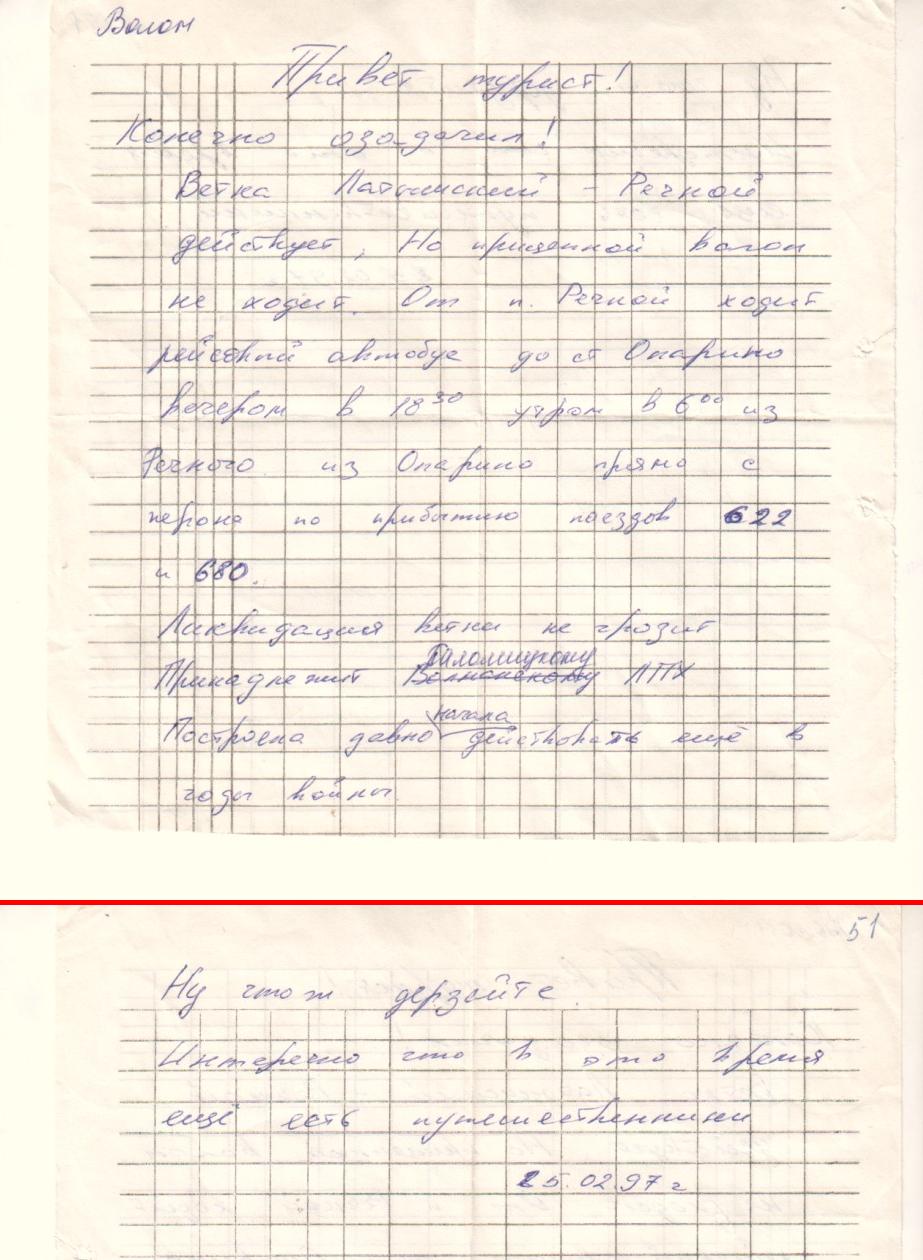 Волом
Привет турист!
Конечно озадачил!
Ветка Латышский – Речной
действует, Но прицепной вагон
не ходит. От п. Речной ходит
рейсовый автобус до ст Опарино
вечером в 18 30 утром в 6 00 из
Речного из Опарино прямо с
перона по прибытию поездов 622
и 680.
Ликвидация ветки не грозит
Принадлежит Паломицкому ЛПХ
Построена давно начала действовать ещё в
годы войны
51
Ну что ж дерзайте.
Интересно что в это время
ещё есть путешественники
25.02.97 г